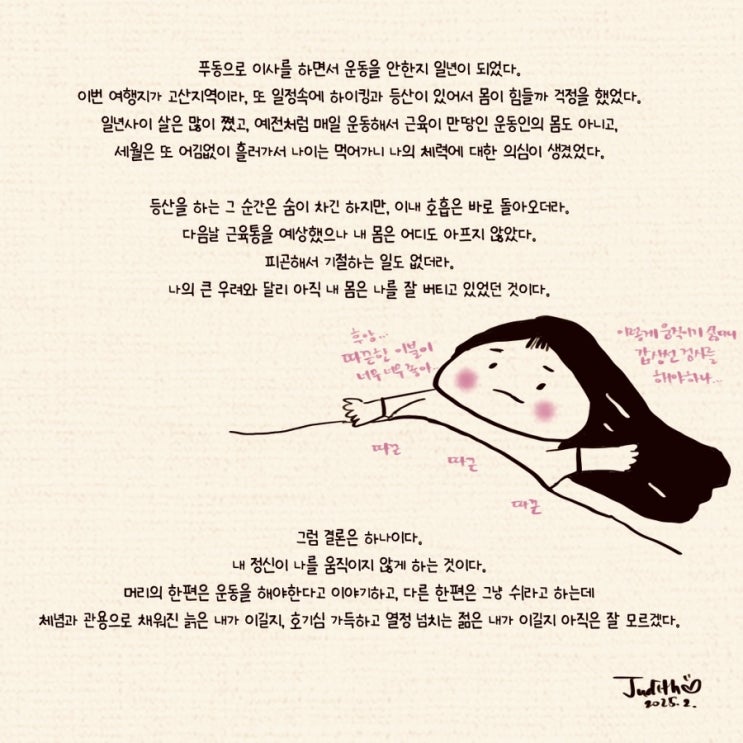 푸동으로 이사를 하면서 운동을 안한지 일년이 되었다.
이번 여행지가 고산지역이라, 또 일정속에 하이킹과 등산이 있어서 몸이 힘들까 걱정을 했었다.
일년사이 살은 많이 쪘고, 예전처럼 매일 운동해서 근육이 만땅인 운동인의 몸도 아니고,
세월은 또 어김없이 흘러가서 나이는 먹어가니 나의 체력에 대한 의심이 생겼었다.
등산을 하는 그 순간은 숨이 차긴 하지만, 이내 호흡은 바로 돌아오더라.
다음날 근육통을 예상했으나 내 몸은 어디도 아프지 않았다.
피곤해서 기절하는 일도 없더라.
나의 큰 우려와 달리 아직 내 몸은 나를 잘 버티고 있었던 것이다.
후앙...
따끈한 이불이
너무 너무 좋아..
이렇게 움직이기 싫다니
갑생선 검사를
해야하나...
따끈
따끈
따끈
그럼 결론은 하나이다.
내 정신이 나를 움직이지 않게 하는 것이다.
머리의 한편은 운동을 해야한다고 이야기하고, 다른 한편은 그냥 쉬라고 하는데
체념과 관용으로 채워진 늙은 내가 이길지, 호기심 가득하고 열정 넘치는 젊은 내가 이길지 아직은 잘 모르겠다.
Judith
2025. 2.